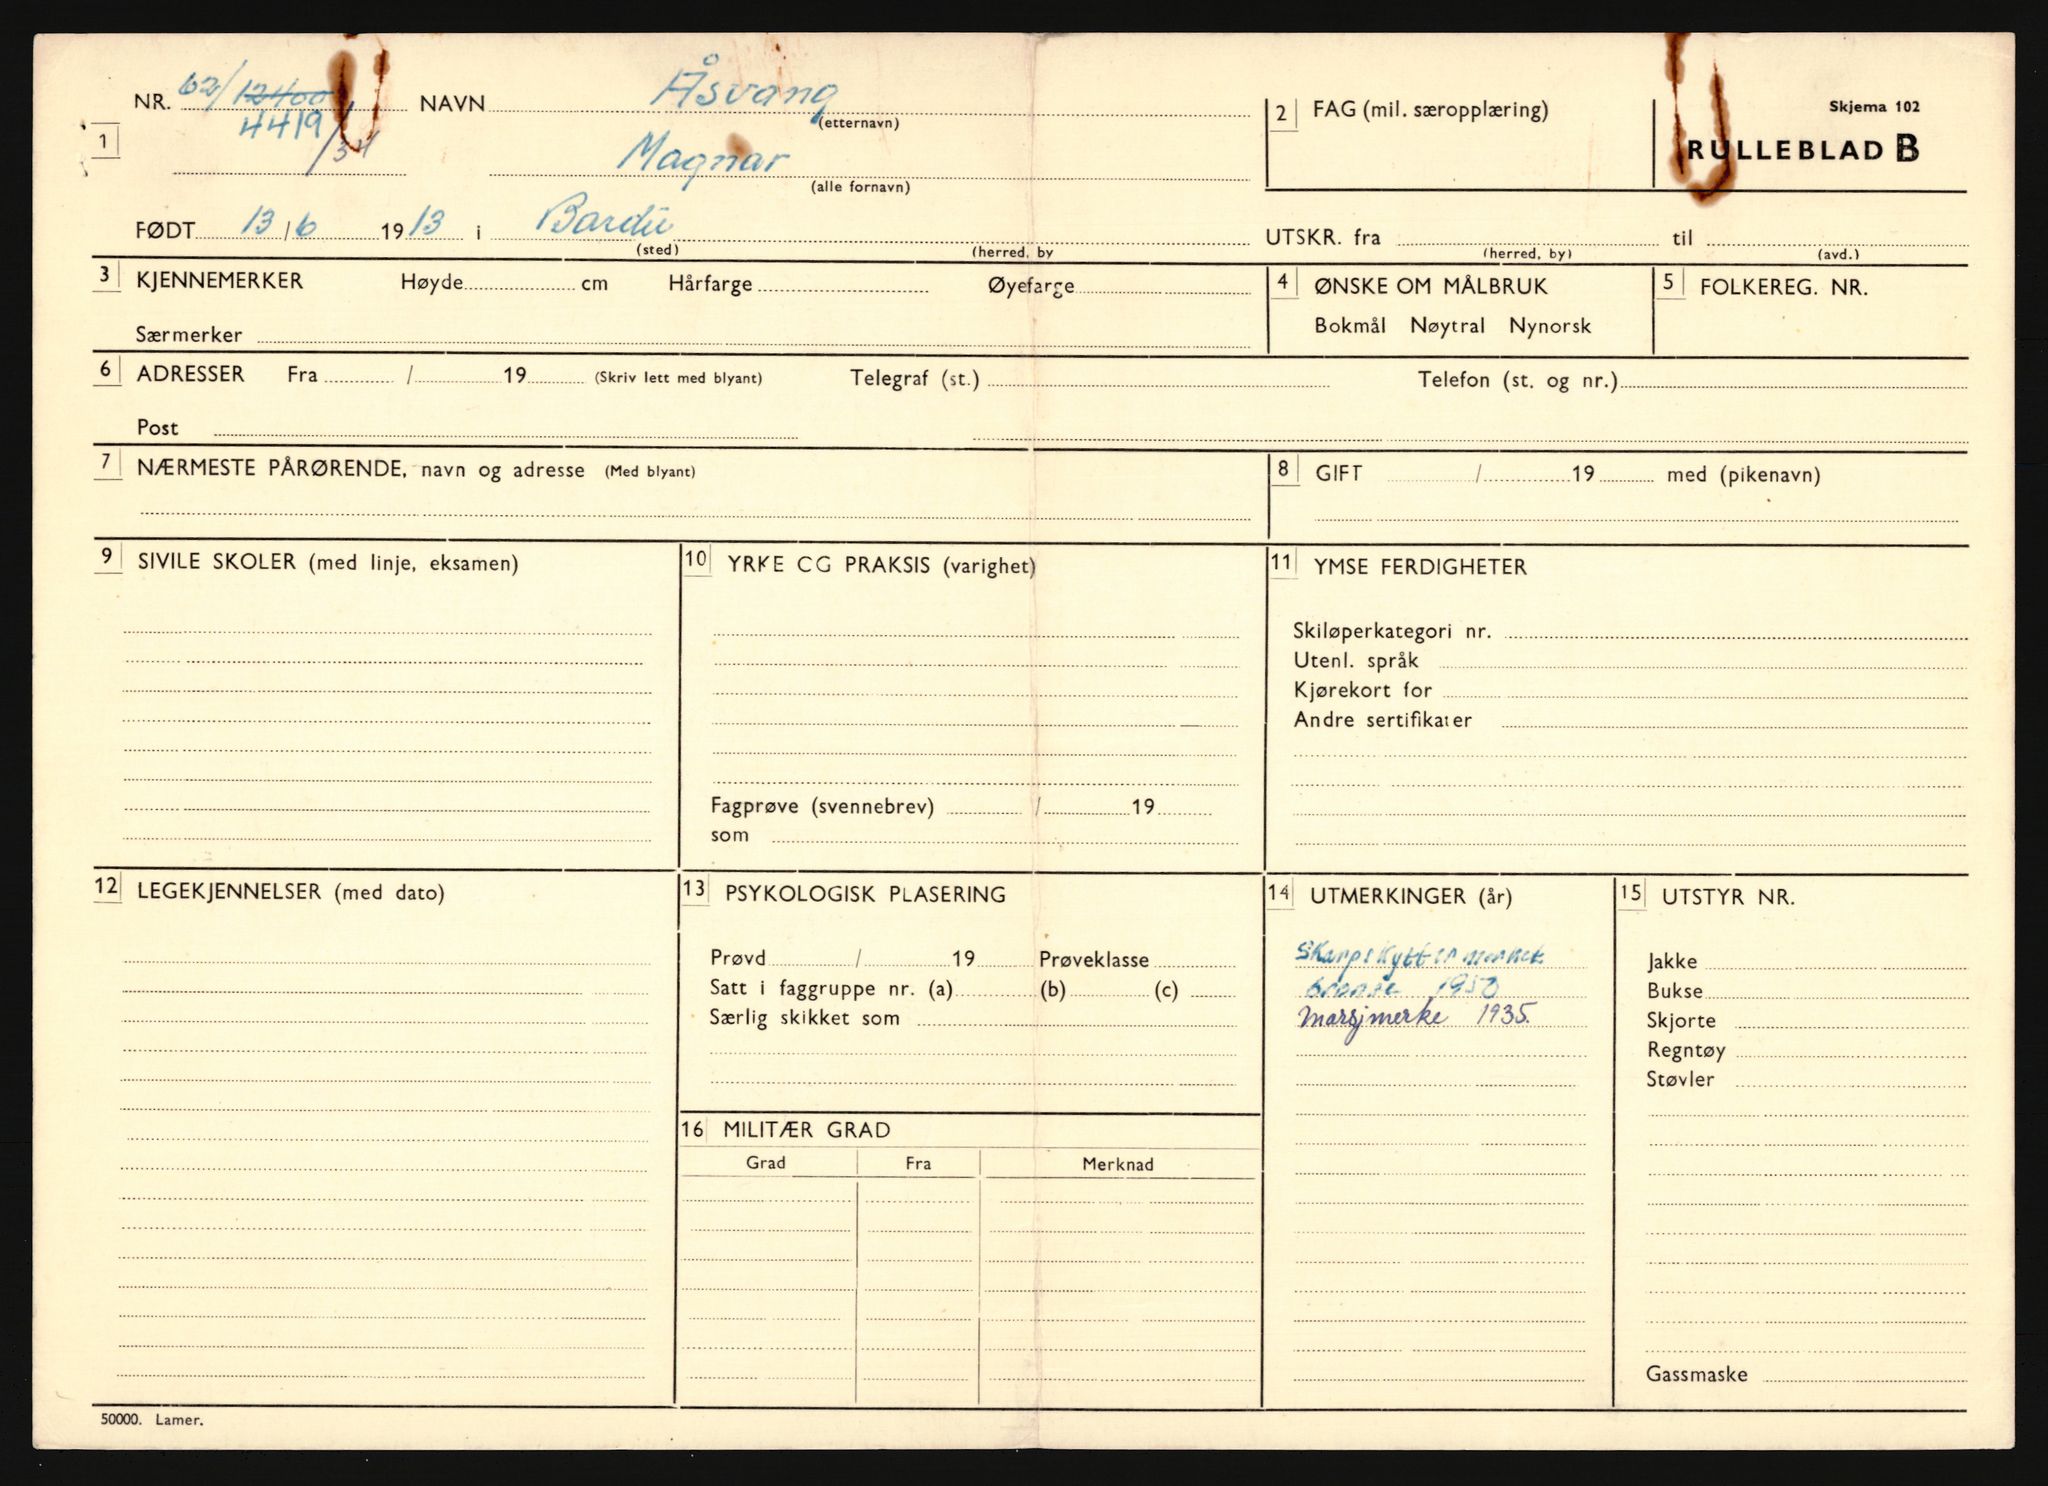 NR. 62/ 12400 NAVN Åsvang
4419/34 (etternavn)
1 Magnar
(alle fornavn)
2 FAG (mil. særopplæring)
Skjema 102
RULLEBLAD B
FØDT 13/6 1913 i Bardu
(sted) (herred, by
UTSKR. fra til
(herred, by) (avd.)
3 KJENNEMERKER Høyde cm Hårfarge Øyefarge
Særmerker
4 ØNSKE OM MÅLBRUK
Bokmål Nøytral Nynorsk
5 FOLKEREG. NR.
6 ADRESSER Fra / 19 (Skriv lett med blyant) Telegraf (st.) Telefon (st. og nr.)
Post
7 NÆRMESTE PÅRØRENDE, navn og adresse (Med blyant)
8 GIFT / 19 med (pikenavn)
9 SIVILE SKOLER (med linje, eksamen)
10 YRKE CG PRAKSIS (varighet)
Fagprøve (svennebrev) / 19
som
11 YMSE FERDIGHETER
Skiløperkategori nr.
Utenl. språk
Kjørekort for
Andre sertifikater
12 LEGEKJENNELSER (med dato)
13 PSYKOLOGISK PLASERING
Prøvd / 19 Prøveklasse
Satt i faggruppe nr. (a) (b) (c)
Særlig skikket som
14 UTMERKINGER (år)
Skarpskyttermerket
bronse 1950
Marsjmerke 1935.
15 UTSTYR NR.
Jakke
Bukse
Skjorte
Regntøy
Støvler
Gassmaske
16 MILITÆR GRAD
Grad Fra Merknad
50000. Lamer.